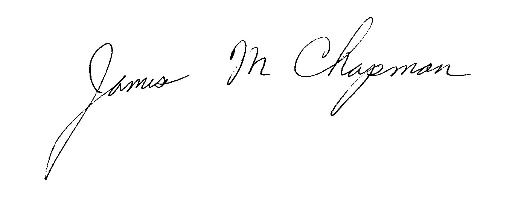 James M Chapman